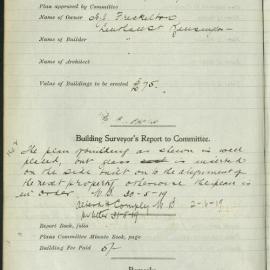 Plan approved by Committee
Name of Owner
Kensington
Name of Builder
Name of Architect
Value of Buildings to be erected £75.
Building Surveyor's Report to Committee.
The plan as shown is well
but glass is inserted
on the side built on to the alignment of
the next property otherwise the plan is
in order 30-5-19
Comply 2-6-19
Report Book, folio
Plans Committee Minute Book, page
Building Fee Paid 5/-
Remarks